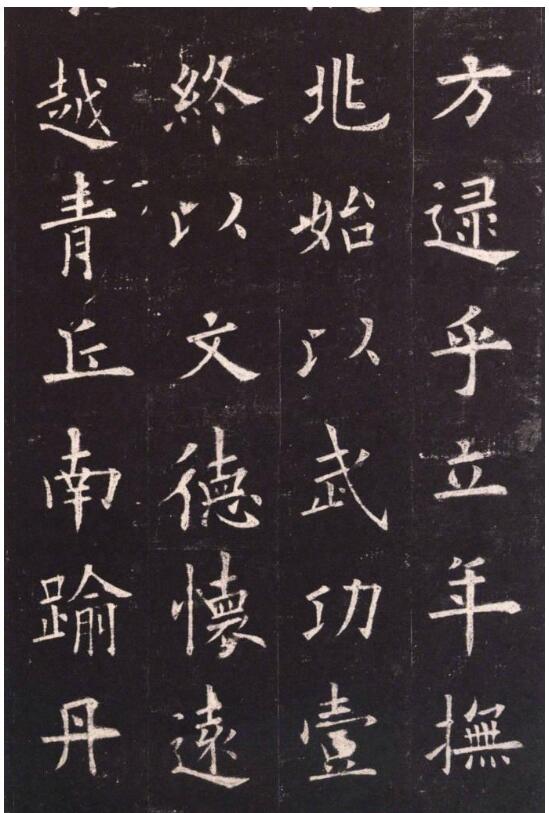 方逮乎立年撫
兆始以武功壹
終以文德懷遠
越青丘南踰丹